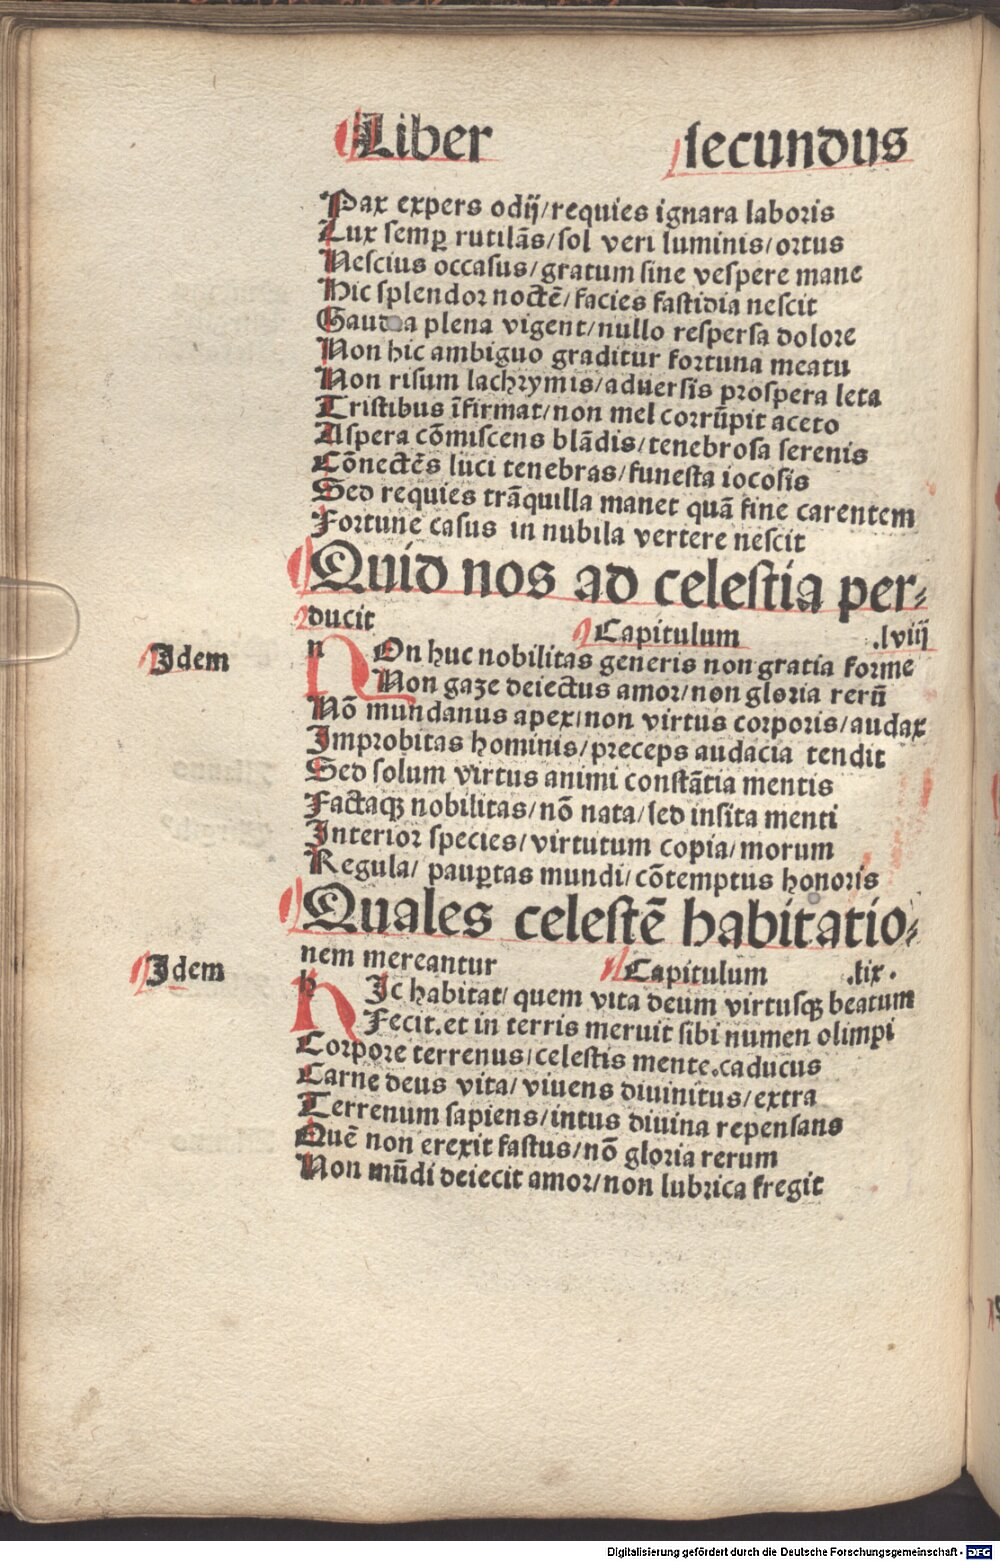 Liber secundus
Pax expers odij/requies ignara laboris
Lux semꝑ rutilãs/sol veri luminis/ortus
Nescius occasus/gratum sine vespere mane
Hic splendor noctẽ/facies fastidia nescit
Gaudia plena vigent/nullo respersa dolore
Non hic ambiguo graditur fortuna meatu
Non risum lachrymis/aduersis prospera leta
Tristibus ĩfirmat/non mel corrũpit aceto
Aspera cõmiscens blãdis/tenebrosa serenis
Cõnectẽs luci tenebras/funesta iocosis
Sed requies trãquilla manet quã fine carentem
Fortune casus in nubila vertere nescit
Quid nos ad celestia per⸗
ducit
Capitulum .lviij
Idem
n
NOn huc nobilitas generis non gratia forme
Non gaze deiectus amor/non gloria rerũ
Nõ mundanus apex/non virtus corporis/audax
Improbitas hominis/preceps audacia tendit
Sed solum virtus animi constãtia mentis
Factaqꝫ nobilitas/nõ nata/sed insita menti
Interior species/virtutum copia/morum
Regula/ pauꝑtas mundi/cõtemptus honoris
Quales celestẽ habitatio⸗
nem mereantur Capitulum .lix.
Idem
h
HIc habitat/ quem vita deum virtusqꝫ beatum
Fecit.et in terris meruit sibi numen olimpi
Corpore terrenus/celestis mente.caducus
Carne deus vita/ viuens diuinitus/extra
Terrenum sapiens/intus diuina repensans
Quẽ non erexit fastus/nõ gloria rerum
Non mũdi deiecit amor/non lubrica fregit
Digitalisierung gefördert durch die Deutsche Forschungsgemeinschaft - DFG